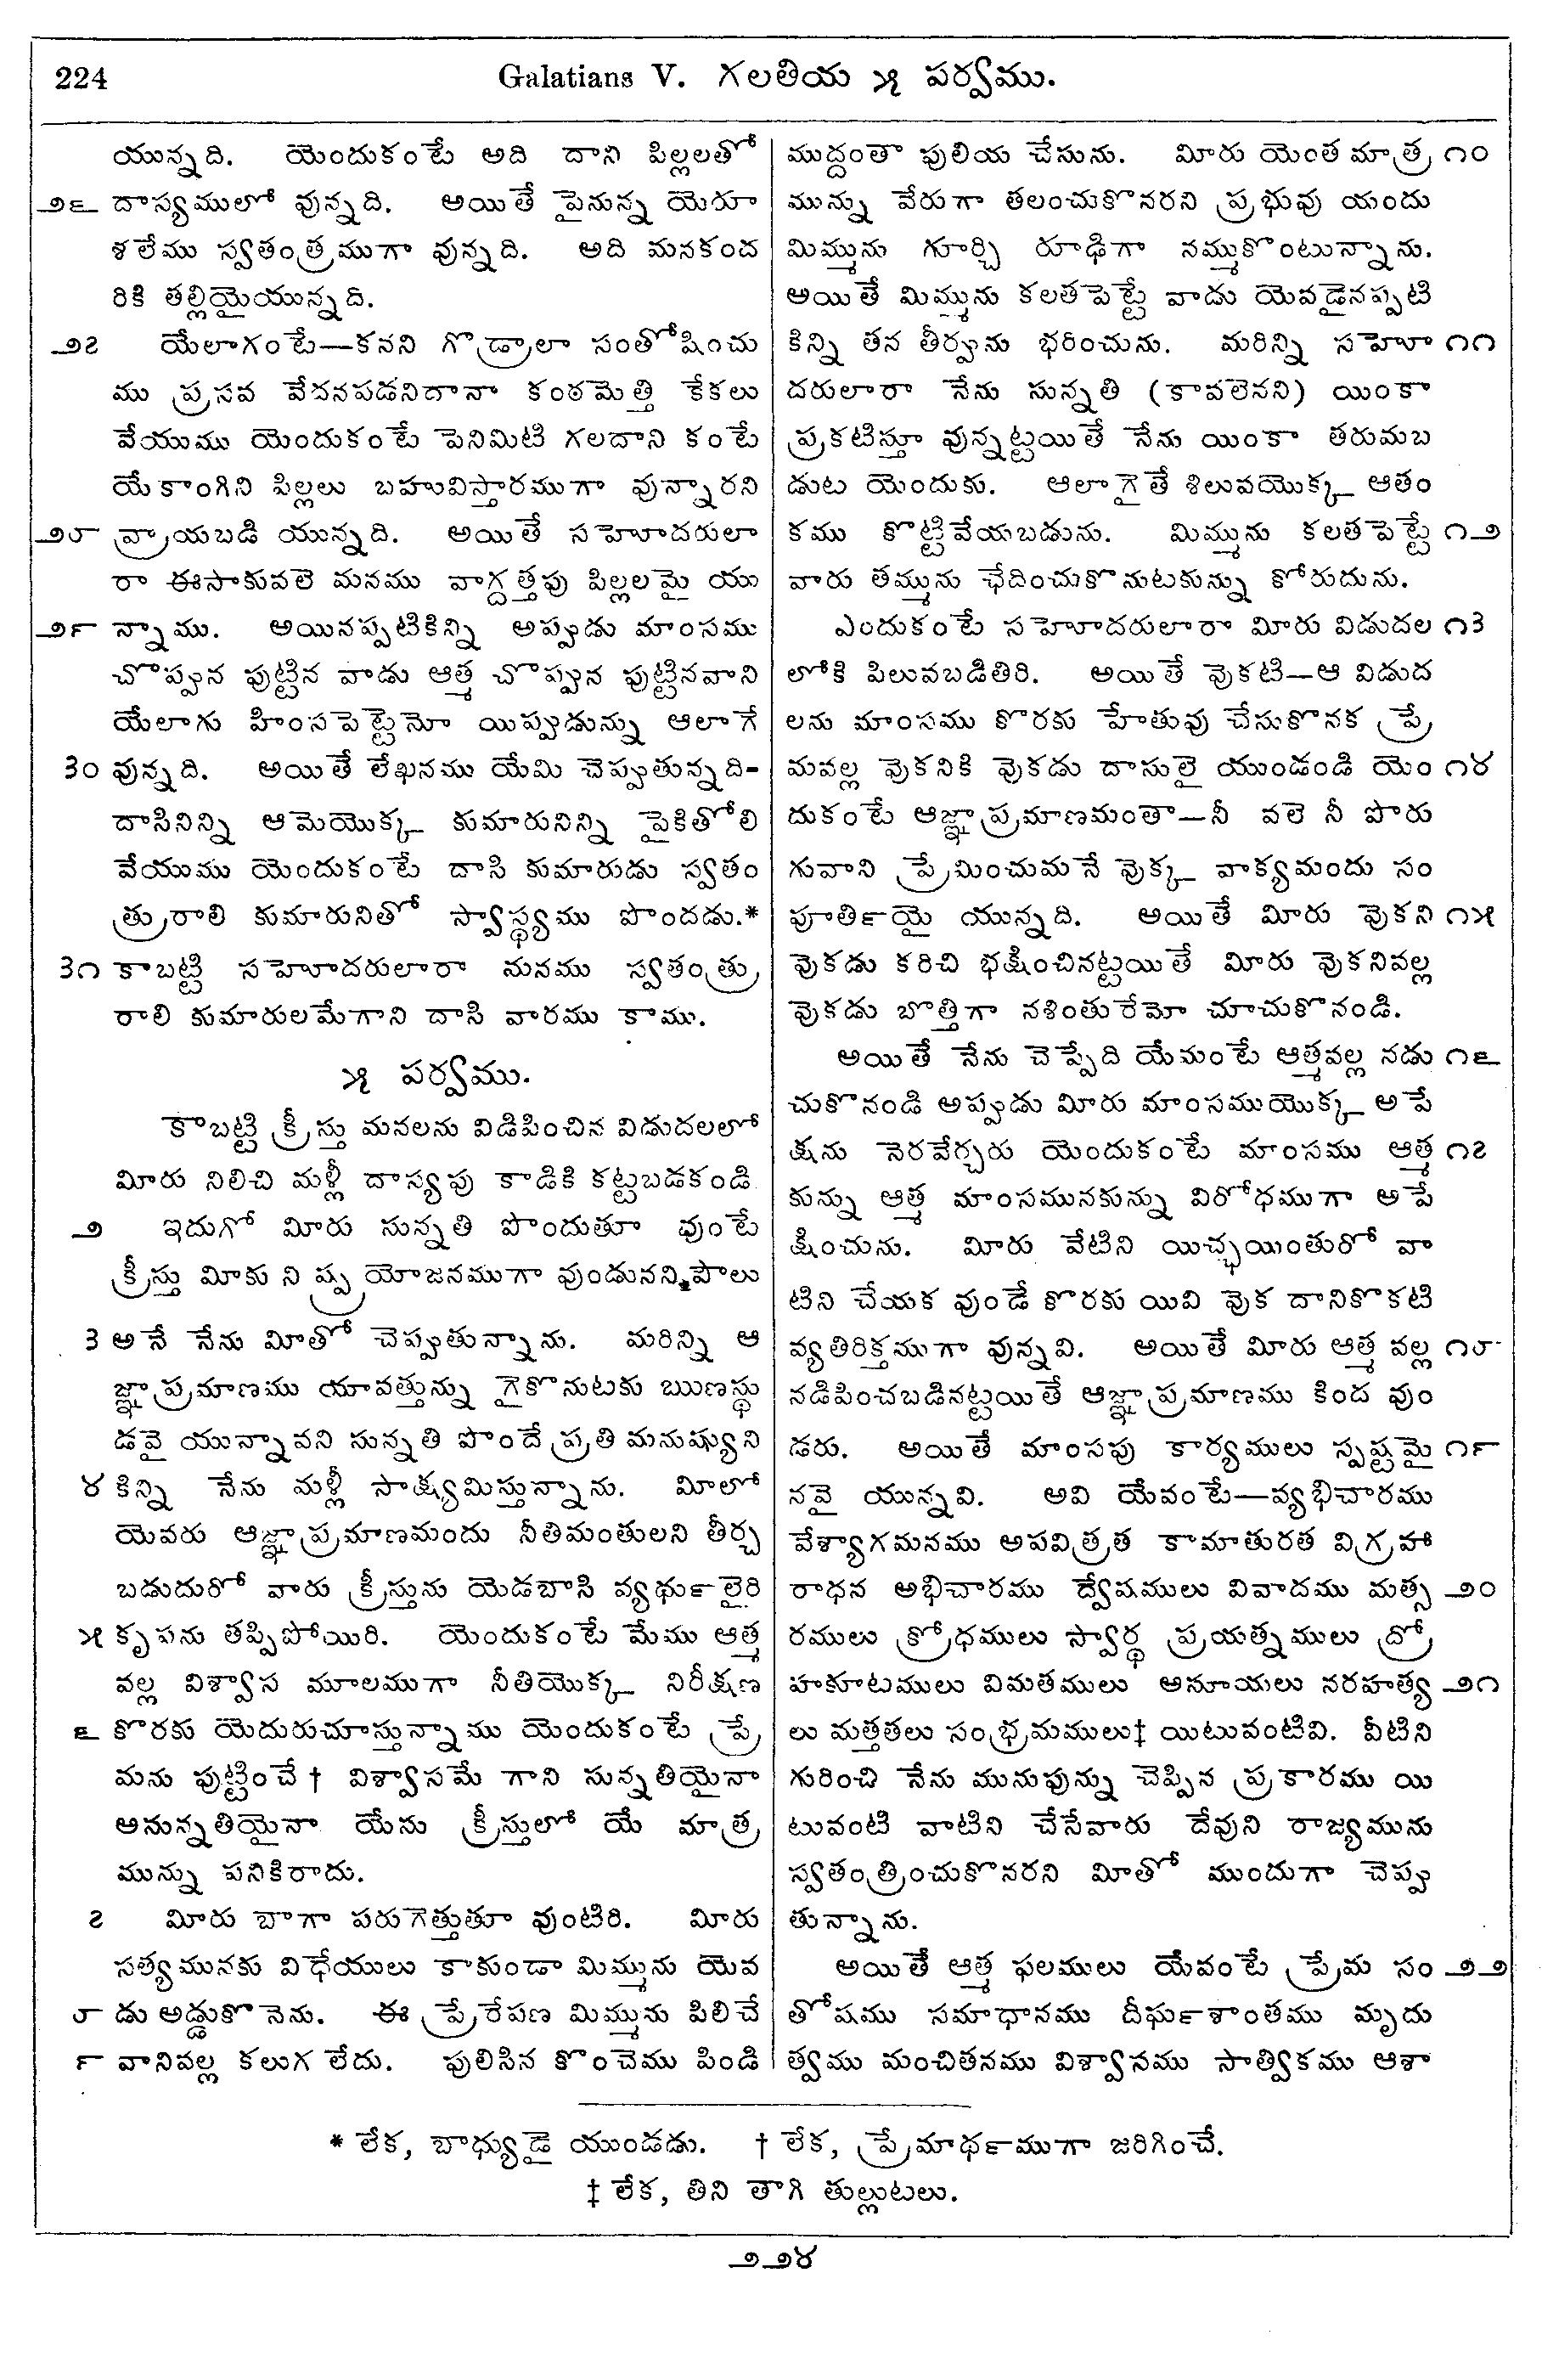 224
Galatians V. గలతియ ౫ పర్వము.
యున్నది. యెందుకంటే అది దాని పిల్లలతో
౨౬ దాస్యములో వున్నది. అయితే పైనున్న యెరూ
శలేము స్వతంత్రముగా వున్నది. అది మనకంద
రికి తల్లియైయున్నది.
౨౭ యేలాగంటే—కనని గొడ్రాలా సంతోషించు
ము ప్రసవ వేదనపడనిదానా కంఠమెత్తి కేకలు
వేయుము యెందుకంటే పెనిమిటి గలదాని కంటే
యేకాంగిని పిల్లలు బహువిస్తారముగా వున్నారని
౨౮ వ్రాయబడి యున్నది. అయితే సహోదరులా
రా ఈసాకువలె మనము వాగ్దత్తపు పిల్లలమై యు
౨౯ న్నాము. అయినప్పటికిన్ని అప్పుడు మాంసము
చొప్పున పుట్టిన వాడు ఆత్మ చొప్పున పుట్టినవాని
యేలాగు హింసపెట్టెనో యిప్పుడున్ను ఆలాగే
౩౦ వున్నది. అయితే లేఖనము యేమి చెప్పుతున్నది-
దాసినిన్ని ఆమెయొక్క కుమారునిన్ని పైకితోలి
వేయుము యెందుకంటే దాసి కుమారుడు స్వతం
త్రురాలి కుమారునితో స్వాస్థ్యము పొందడు.*
౩౧ కాబట్టి సహోదరులారా మనము స్వతంత్రు
రాలి కుమారులమేగాని దాసి వారము కాము.
౫ పర్వము.
కాబట్టి క్రీస్తు మనలను విడిపించిన విడుదలలో
మీరు నిలిచి మళ్లీ దాస్యపు కాడికి కట్టబడకండి
౨ ఇదుగో మీరు సున్నతి పొందుతూ వుంటే
క్రీస్తు మీకు నిష్ప్రయోజనముగా వుండునని పౌలు
౩ అనే నేను మీతో చెప్పుతున్నాను. మరిన్ని ఆ
జ్ఞాప్రమాణము యావత్తున్ను గైకొనుటకు ఋణస్థు
డవై యున్నావని సున్నతి పొందే ప్రతి మనుష్యుని
౪ కిన్ని నేను మళ్లీ సాక్ష్యమిస్తున్నాను. మీలో
యెవరు ఆజ్ఞాప్రమాణమందు నీతిమంతులని తీర్చ
బడుదురో వారు క్రీస్తును యెడబాసి వ్యథుర్‍లైరి
౫ కృపను తప్పిపోయిరి. యెందుకంటే మేము ఆత్మ
వల్ల విశ్వాస మూలముగా నీతియొక్క నిరీక్షణ
౬ కొరకు యెదురుచూస్తున్నాము యెందుకంటే ప్రే
మను పుట్టించే† విశ్వాసమే గాని సున్నతియైనా
అసున్నతియైనా యేసు క్రీస్తులో యే మాత్ర
మున్ను పనికిరాదు.
౭ మీరు బాగా పరుగెత్తుతూ వుంటిరి. మీరు
సత్యమునకు విధేయులు కాకుండా మిమ్మును యెవ
౮ డు అడ్డుకొనెను. ఈ ప్రేరేపణ మిమ్మును పిలిచే
౯ వానివల్ల కలుగ లేదు. పులిసిన కొంచెము పిండి
ముద్దంతా పులియ చేసును. మీరు యెంత మాత్ర ౧౦
మున్ను వేరుగా తలంచుకొనరని ప్రభువు యందు
మిమ్మును గూర్చి రూఢిగా నమ్ముకొంటున్నాను.
అయితే మిమ్మును కలతపెట్టే వాడు యెవడైనప్పటి
కిన్ని తన తీర్పును భరించును. మరిన్ని సహో ౧౧
దరులారా నేను సున్నతి (కావలెనని) యింకా
ప్రకటిస్తూ వున్నట్టయితే నేను యింకా తరుమబ
డుట యెందుకు. ఆలాగైతే శిలువయొక్క ఆతం
కము కొట్టివేయబడును. మిమ్మును కలతపెట్టే ౧౨
వారు తమ్మును ఛేదించుకొనుటకున్ను కోరుదును.
ఎందుకంటే సహోదరులారా మీరు విడుదల ౧౩
లోకి పిలువబడితిరి. అయితే వొకటి—ఆ విడుద
లను మాంసము కొరకు హేతువు చేసుకొనక ప్రే
మవల్ల వొకనికి వొకడు దాసులై యుండండి యెం ౧౪
దుకంటే ఆజ్ఞాప్రమాణమంతా—నీ వలె నీ పొరు
గువాని ప్రేమించుమనే వొక్క వాక్యమందు సం
పూతిర్‍యై యున్నది. అయితే మీరు వొకని ౧౫
వొకడు కరిచి భక్షించినట్టయితే మీరు వొకనివల్ల
వొకడు బొత్తిగా నశింతురేమో చూచుకొనండి.
అయితే నేను చెప్పేది యేమంటే ఆత్మవల్ల నడు ౧౬
చుకొనండి అప్పుడు మీరు మాంసముయొక్క అపే
క్షను నెరవేర్చరు యెందుకంటే మాంసము ఆత్మ ౧౭
కున్ను ఆత్మ మాంసమునకున్ను విరోధముగా అపే
క్షించును. మీరు వేటిని యిచ్ఛయింతురో వా
టిని చేయక వుండే కొరకు యివి వొక దానికొకటి
వ్యతిరిక్తముగా వున్నవి. అయితే మీరు ఆత్మ వల్ల ౧౮
నడిపించబడినట్టయితే ఆజ్ఞాప్రమాణము కింద వుం
డరు. అయితే మాంసపు కార్యములు స్పష్టమై ౧౯
నవై యున్నవి. అవి యేవంటే—వ్యభిచారము
వేశ్యాగమనము అపవిత్రత కామాతురత విగ్రహా
రాధన అభిచారము ద్వేషములు వివాదము మత్స ౨౦
రములు క్రోధములు స్వార్థ ప్రయత్నములు ద్రో
హకూటములు విమతములు అసూయలు నరహత్య ౨౧
లు మత్తతలు సంభ్రమములు‡ యిటువంటివి. వీటిని
గురించి నేను మునుపున్ను చెప్పిన ప్రకారము యి
టువంటి వాటిని చేసేవారు దేవుని రాజ్యమును
స్వతంత్రించుకొనరని మీతో ముందుగా చెప్పు
తున్నాను.
అయితే ఆత్మ ఫలములు యేవంటే ప్రేమ సం ౨౨
తోషము సమాధానము దీఘర్‍శాంతము మృదు
త్వము మంచితనము విశ్వాసము సాత్వికము ఆశా
* లేక, బాధ్యుడై యుండడు. † లేక, ప్రేమాథర్‍ముగా జరిగించే.
‡ లేక, తిని తాగి తుల్లుటలు.
౨౨౪